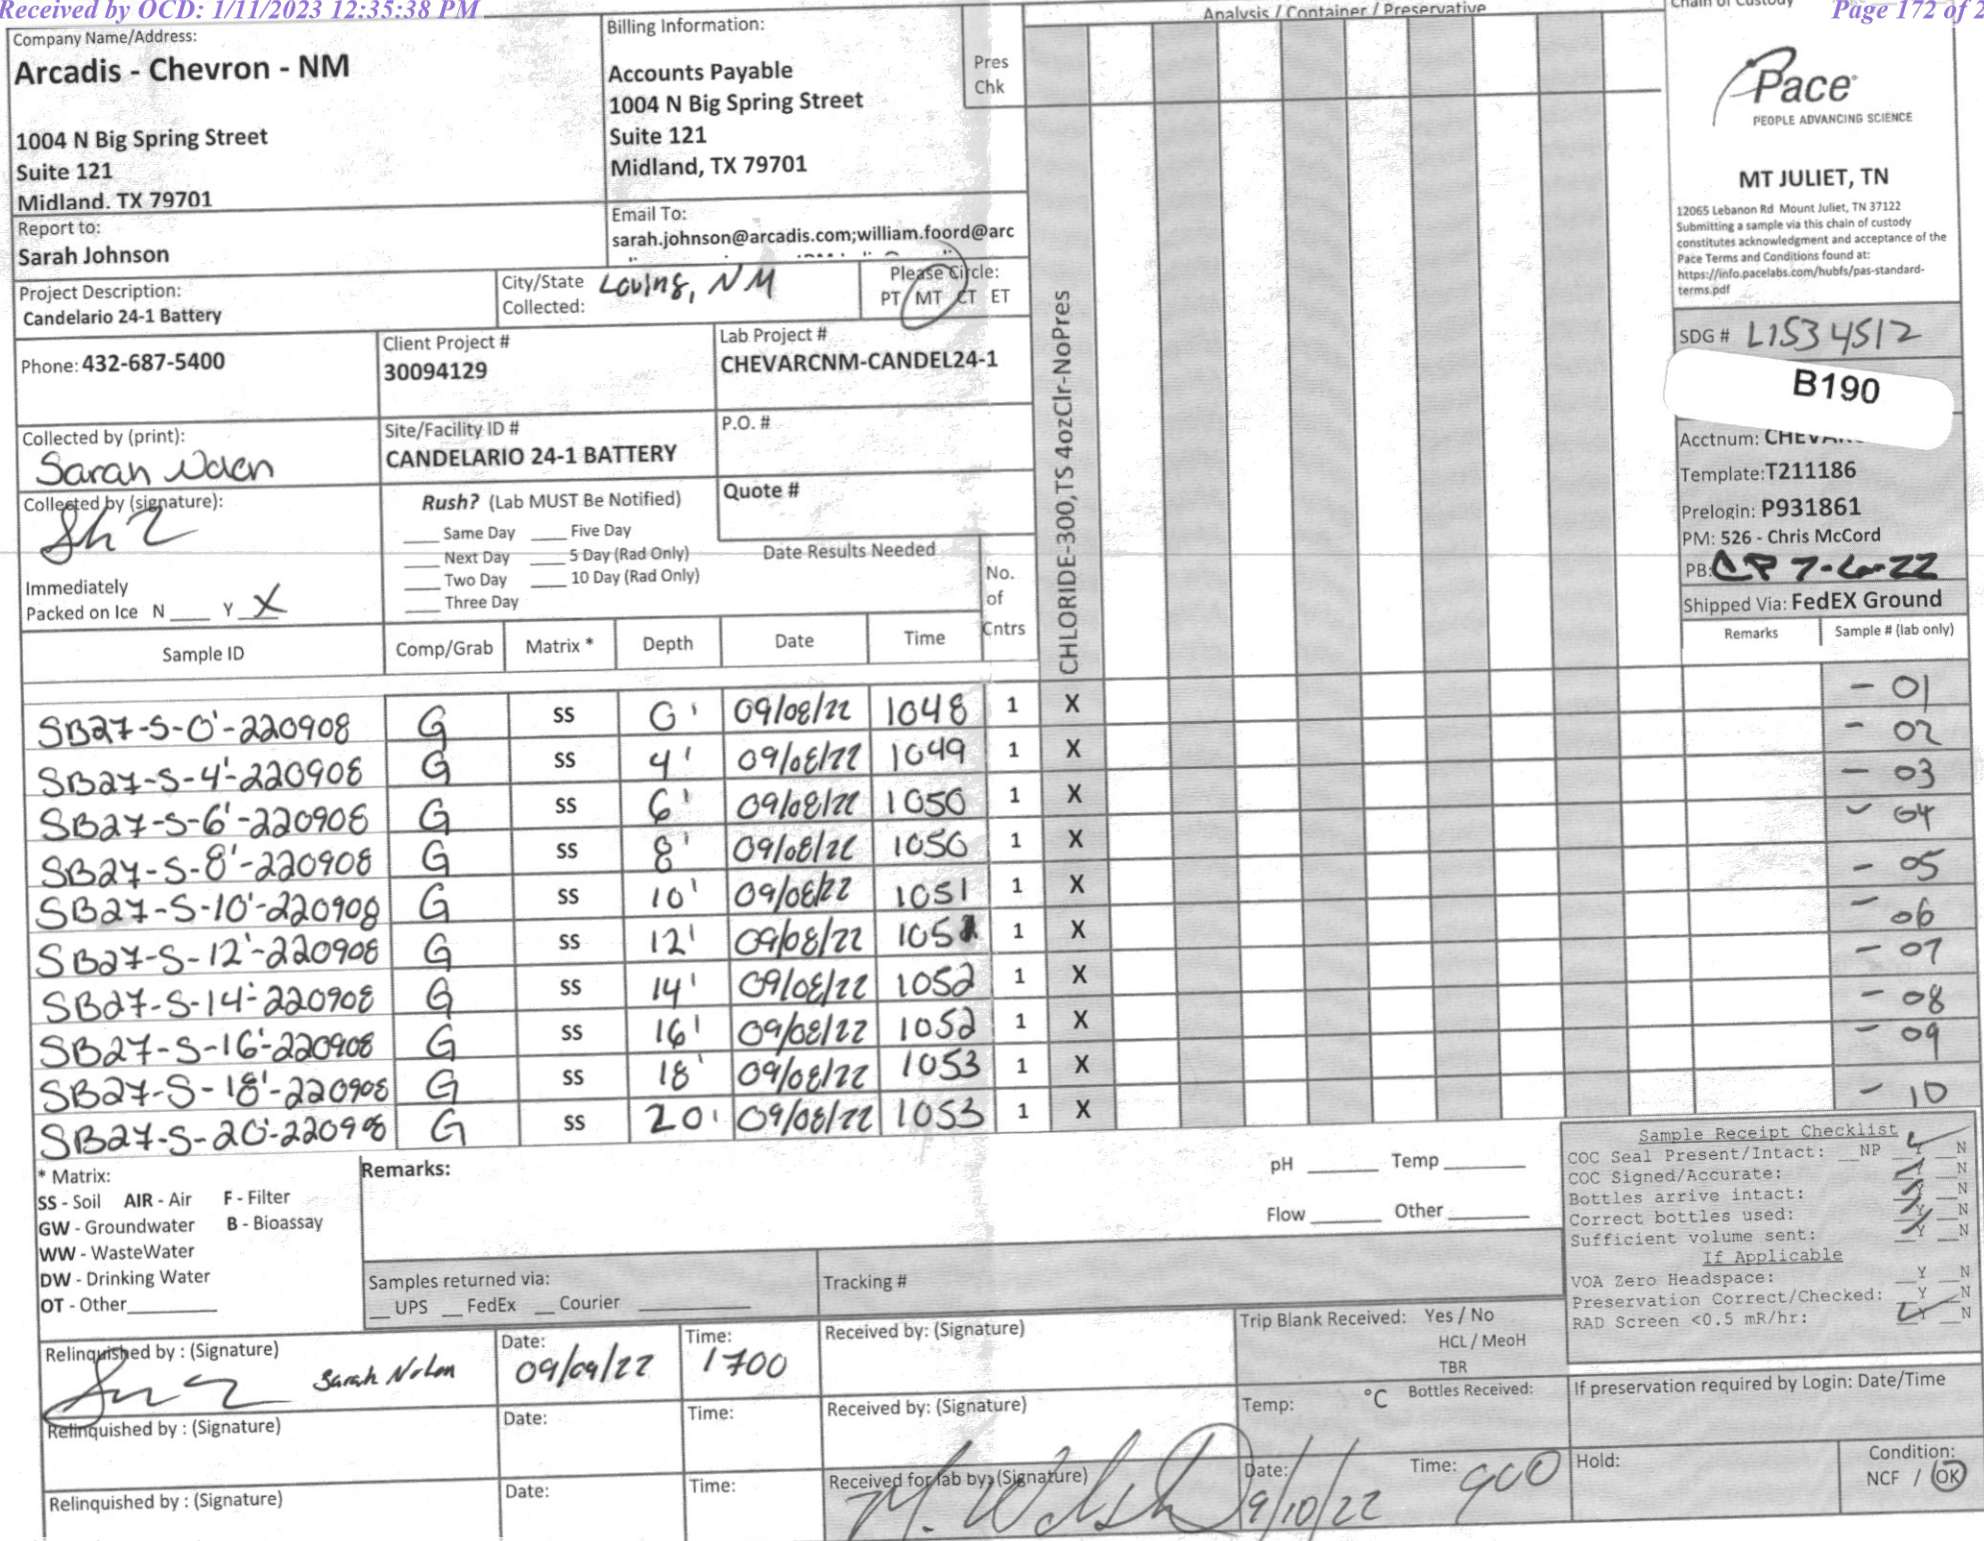 Received by OCD: 1/11/2023 12:35:38 PM
Page 172 of 2
Company Name/Address:
Arcadis - Chevron - NM
1004 N Big Spring Street
Suite 121
Midland, TX 79701
Billing Information:
Accounts Payable
1004 N Big Spring Street
Suite 121
Midland, TX 79701
Pres
Chk
Analysis / Container / Preservative
Chain of Custody
Pace
PEOPLE ADVANCING SCIENCE
MT JULIET, TN
12065 Lebanon Rd Mount Juliet, TN 37122
Submitting a sample via this chain of custody
constitutes acknowledgment and acceptance of the
Pace Terms and Conditions found at:
https://info.pacelabs.com/hubfs/pas-standard-
terms.pdf
Report to:
Sarah Johnson
Email To:
sarah.johnson@arcadis.com;william.foord@arc
Project Description:
Candelario 24-1 Battery
City/State
Collected: Loving, NM
Please Circle:
PT MT CT ET
Phone: 432-687-5400
Client Project #
30094129
Lab Project #
CHEVARCNM-CANDEL24-1
SDG # L1534512
B190
Acctnum: CHEVA
Template: T211186
Prelogin: P931861
PM: 526 - Chris McCord
PB:
Shipped Via: FedEX Ground
Collected by (print):
Sarah
Site/Facility ID #
CANDELARIO 24-1 BATTERY
P.O. #
Collected by (signature):
Rush? (Lab MUST Be Notified)
___ Same Day ___ Five Day
___ Next Day ___ 5 Day (Rad Only)
___ Two Day ___ 10 Day (Rad Only)
___ Three Day
Quote #
Date Results Needed
Immediately
Packed on Ice N ___ Y X
No.
of
Cntrs
CHLORIDE-300,TS 4ozClr-NoPres
Sample ID Comp/Grab Matrix * Depth Date Time Remarks Sample # (lab only)
SB27-S-0'-220908 G SS 0' 09/08/22 1048 1 X - 01
SB27-S-4'-220908 G SS 4' 09/08/22 1049 1 X - 02
SB27-S-6'-220908 G SS 6' 09/08/22 1050 1 X - 03
SB27-S-8'-220908 G SS 8' 09/08/22 1050 1 X - 04
SB27-S-10'-220908 G SS 10' 09/08/22 1051 1 X - 05
SB27-S-12'-220908 G SS 12' 09/08/22 1051 1 X - 06
SB27-S-14'-220908 G SS 14' 09/08/22 1052 1 X - 07
SB27-S-16'-220908 G SS 16' 09/08/22 1052 1 X - 08
SB27-S-18'-220908 G SS 18' 09/08/22 1053 1 X - 09
SB27-S-20'-220908 G SS 20' 09/08/22 1053 1 X - 10
* Matrix:
SS - Soil AIR - Air F - Filter
GW - Groundwater B - Bioassay
WW - WasteWater
DW - Drinking Water
OT - Other
Remarks:
pH ___ Temp ___
Flow ___ Other ___
Sample Receipt Checklist
COC Seal Present/Intact: __NP __Y __N
COC Signed/Accurate: __Y __N
Bottles arrive intact: __Y __N
Correct bottles used: __Y __N
Sufficient volume sent: __Y __N
If Applicable
VOA Zero Headspace: __Y __N
Preservation Correct/Checked: __Y __N
RAD Screen <0.5 mR/hr: __Y __N
Samples returned via:
__ UPS __ FedEx __ Courier
Tracking #
Relinquished by : (Signature)
Sarah Nolan
Date:
09/09/22
Time:
1700
Received by: (Signature)
Trip Blank Received: Yes / No
HCL / MeoH
TBR
Relinquished by : (Signature)
Date:
Time:
Received by: (Signature)
Temp: °C Bottles Received:
If preservation required by Login: Date/Time
Relinquished by : (Signature)
Date:
Time:
Received for lab by: (Signature)
Date:
9/10/22
Time: 900
Hold:
Condition:
NCF / OK